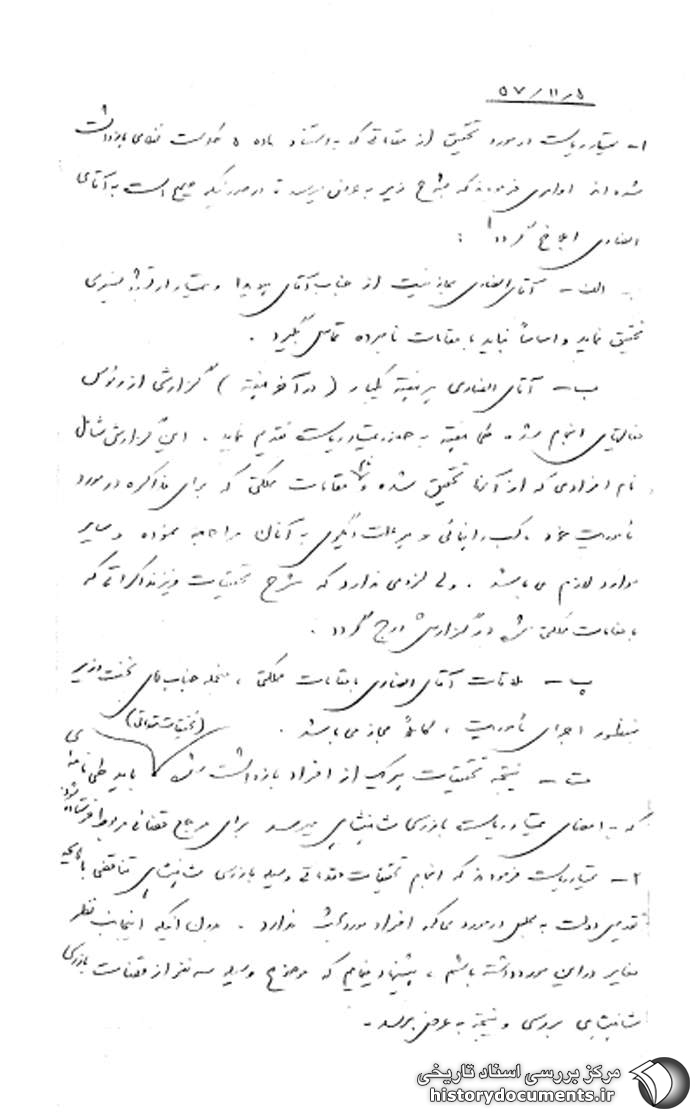 ۵ر۱۱ر۵۷
۱- تیمسار ریاست در مورد تحقیق از مقاماتی که به استناد ماده ۵ حکومت نظامی بازداشت
شده‌اند اوامری فرمودند که بشرح زیر به عرض میرسد تا در صورتیکه صحیح است به آقای
انصاری ابلاغ گردد :
الف - آقای انصاری مجاز نیست از جناب آقای هویدا و تیمسار ارتشبد نصیری
تحقیق نماید و اساساً نباید با مقامات نامبرده تماس بگیرد .
ب - آقای انصاری هر هفته یکبار ( در آخر هفته ) گزارشی از رئوس
فعالیتهای انجام شده طی هفته به حضور تیمسار ریاست تقدیم نماید . این گزارش شامل
نام افرادی که از آنها تحقیق شده و نام مقامات مملکتی که برای مذاکره در مورد
مأموریت خود ، کسب راهنمائی و هر علت دیگری به آنان مراجعه نموده و سایر
موارد لازم می باشد . ولی لزومی ندارد که شرح تحقیقات و نیز مذاکراتی که
با مقامات مملکتی شده در گزارش درج گردد .
پ - ملاقات آقای انصاری با مقامات مملکتی ، منجمله جناب آقای نخست وزیر
بمنظور اجرای مأموریت ، کاملاً مجاز می باشد .
(تحقیقات مقدماتی)
ت - نتیجه تحقیقات هر یک از افراد بازداشت شده باید طی نامه ای
که به امضای تیمسار ریاست بازرسی شاهنشاهی میرسد برای مرجع قضائی مربوط فرستاده شود
۲- تیمسار ریاست فرمودند که انجام تحقیقات مقدماتی وسیله بازرسی شاهنشاهی تناقضی با لایحه
تقدیمی دولت به مجلس در مورد محاکمه افراد مورد بحث ندارد . بدون آنکه اینجانب نظر
مغایر در این مورد داشته باشم ، پیشنهاد مینمایم که موضوع وسیله سه نفر از قضات بازرسی
شاهنشاهی بررسی و نتیجه به عرض برسد .
مرکز بررسی اسناد تاریخی
historydocuments.ir